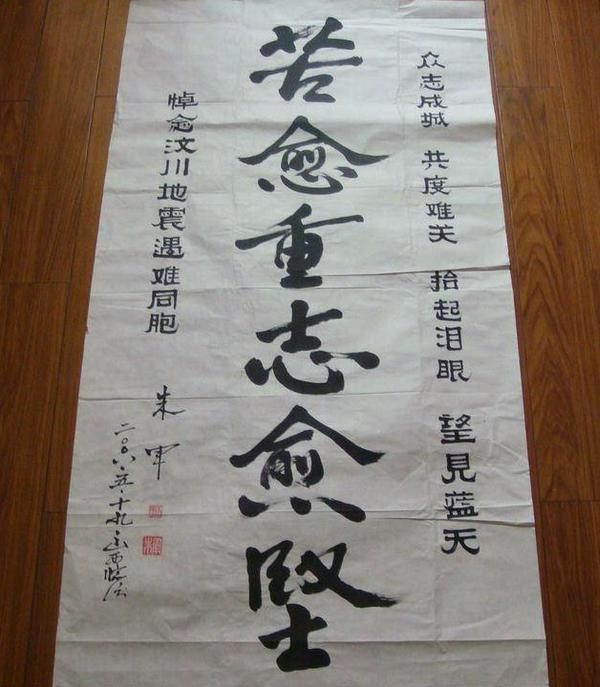 众志成城 共度难关 抬起泪眼 望見蓝天
苦愈重志愈堅
悼念汶川地震遇难同胞
朱军
二〇〇八·五·十九